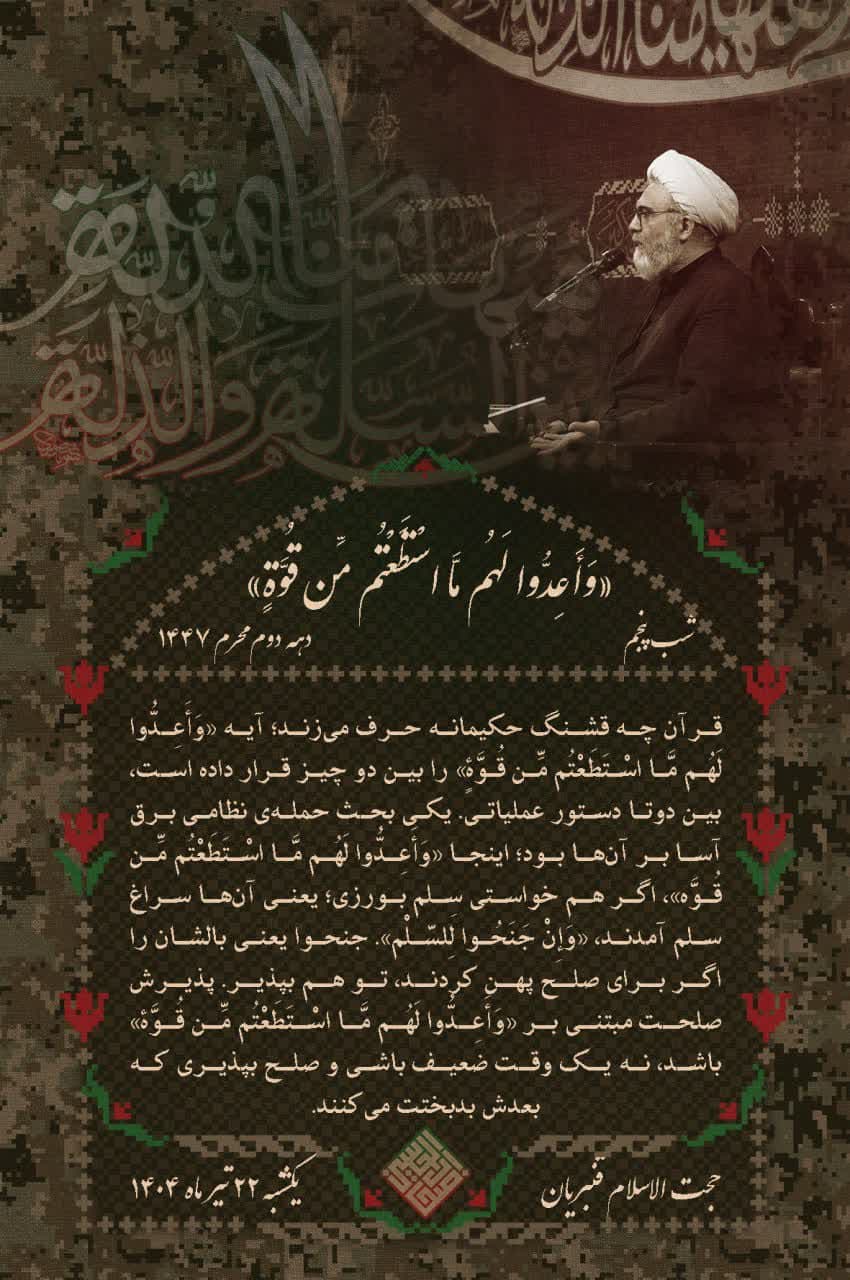 هیهات منا الذلة
السلة والذلة
«وَأَعِدُّوا لَهُم مَّا اسْتَطَعْتُم مِّن قُوَّةٍ»
شب پنجم
دهه دوم محرم ۱۴۴۷
قرآن چه قشنگ حکیمانه حرف می‌زند؛ آیه «وَأَعِدُّوا
لَهُم مَّا اسْتَطَعْتُم مِّن قُوَّةٍ» را بین دو چیز قرار داده است،
بین دوتا دستور عملیاتی. یکی بحث حمله‌ی نظامی برق
آسا بر آن‌ها بود؛ اینجا «وَأَعِدُّوا لَهُم مَّا اسْتَطَعْتُم مِّن
قُوَّه»، اگر هم خواستی سلم بورزی؛ یعنی آن‌ها سراغ
سلم آمدند، «وَإِنْ جَنَحُوا لِلسّلْم». جنحوا یعنی بالشان را
اگر برای صلح پهن کردند، تو هم بپذیر. پذیرش
صلحت مبتنی بر «وَأَعِدُّوا لَهُم مَّا اسْتَطَعْتُم مِّن قُوَّةٔ»
باشد، نه یک وقت ضعیف باشی و صلح بپذیری که
بعدش بدبختت می‌کنند.
حجت الاسلام قنبریان
یکشنبه ۲۲ تیر ماه ۱۴۰۴